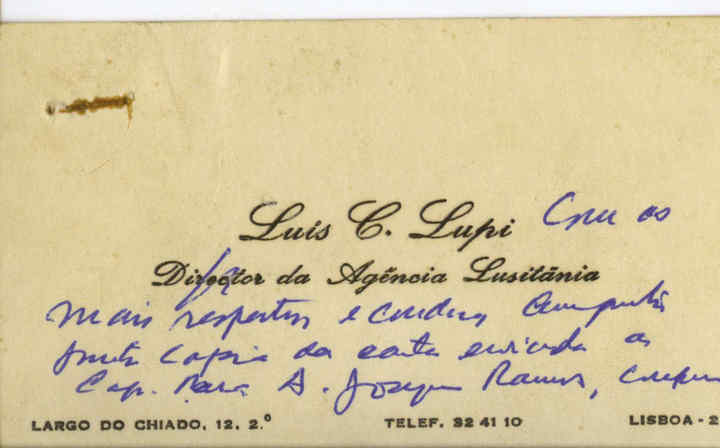 Luís C. Lupi Com os
Director da Agência Lusitânia
mais respeitosos e cordeais cumprimentos
junta copia da carta enviada ao
Cap. A. Joaquim Ramos,
LARGO DO CHIADO, 12, 2.º TELEF. 32 41 10 LISBOA - 2